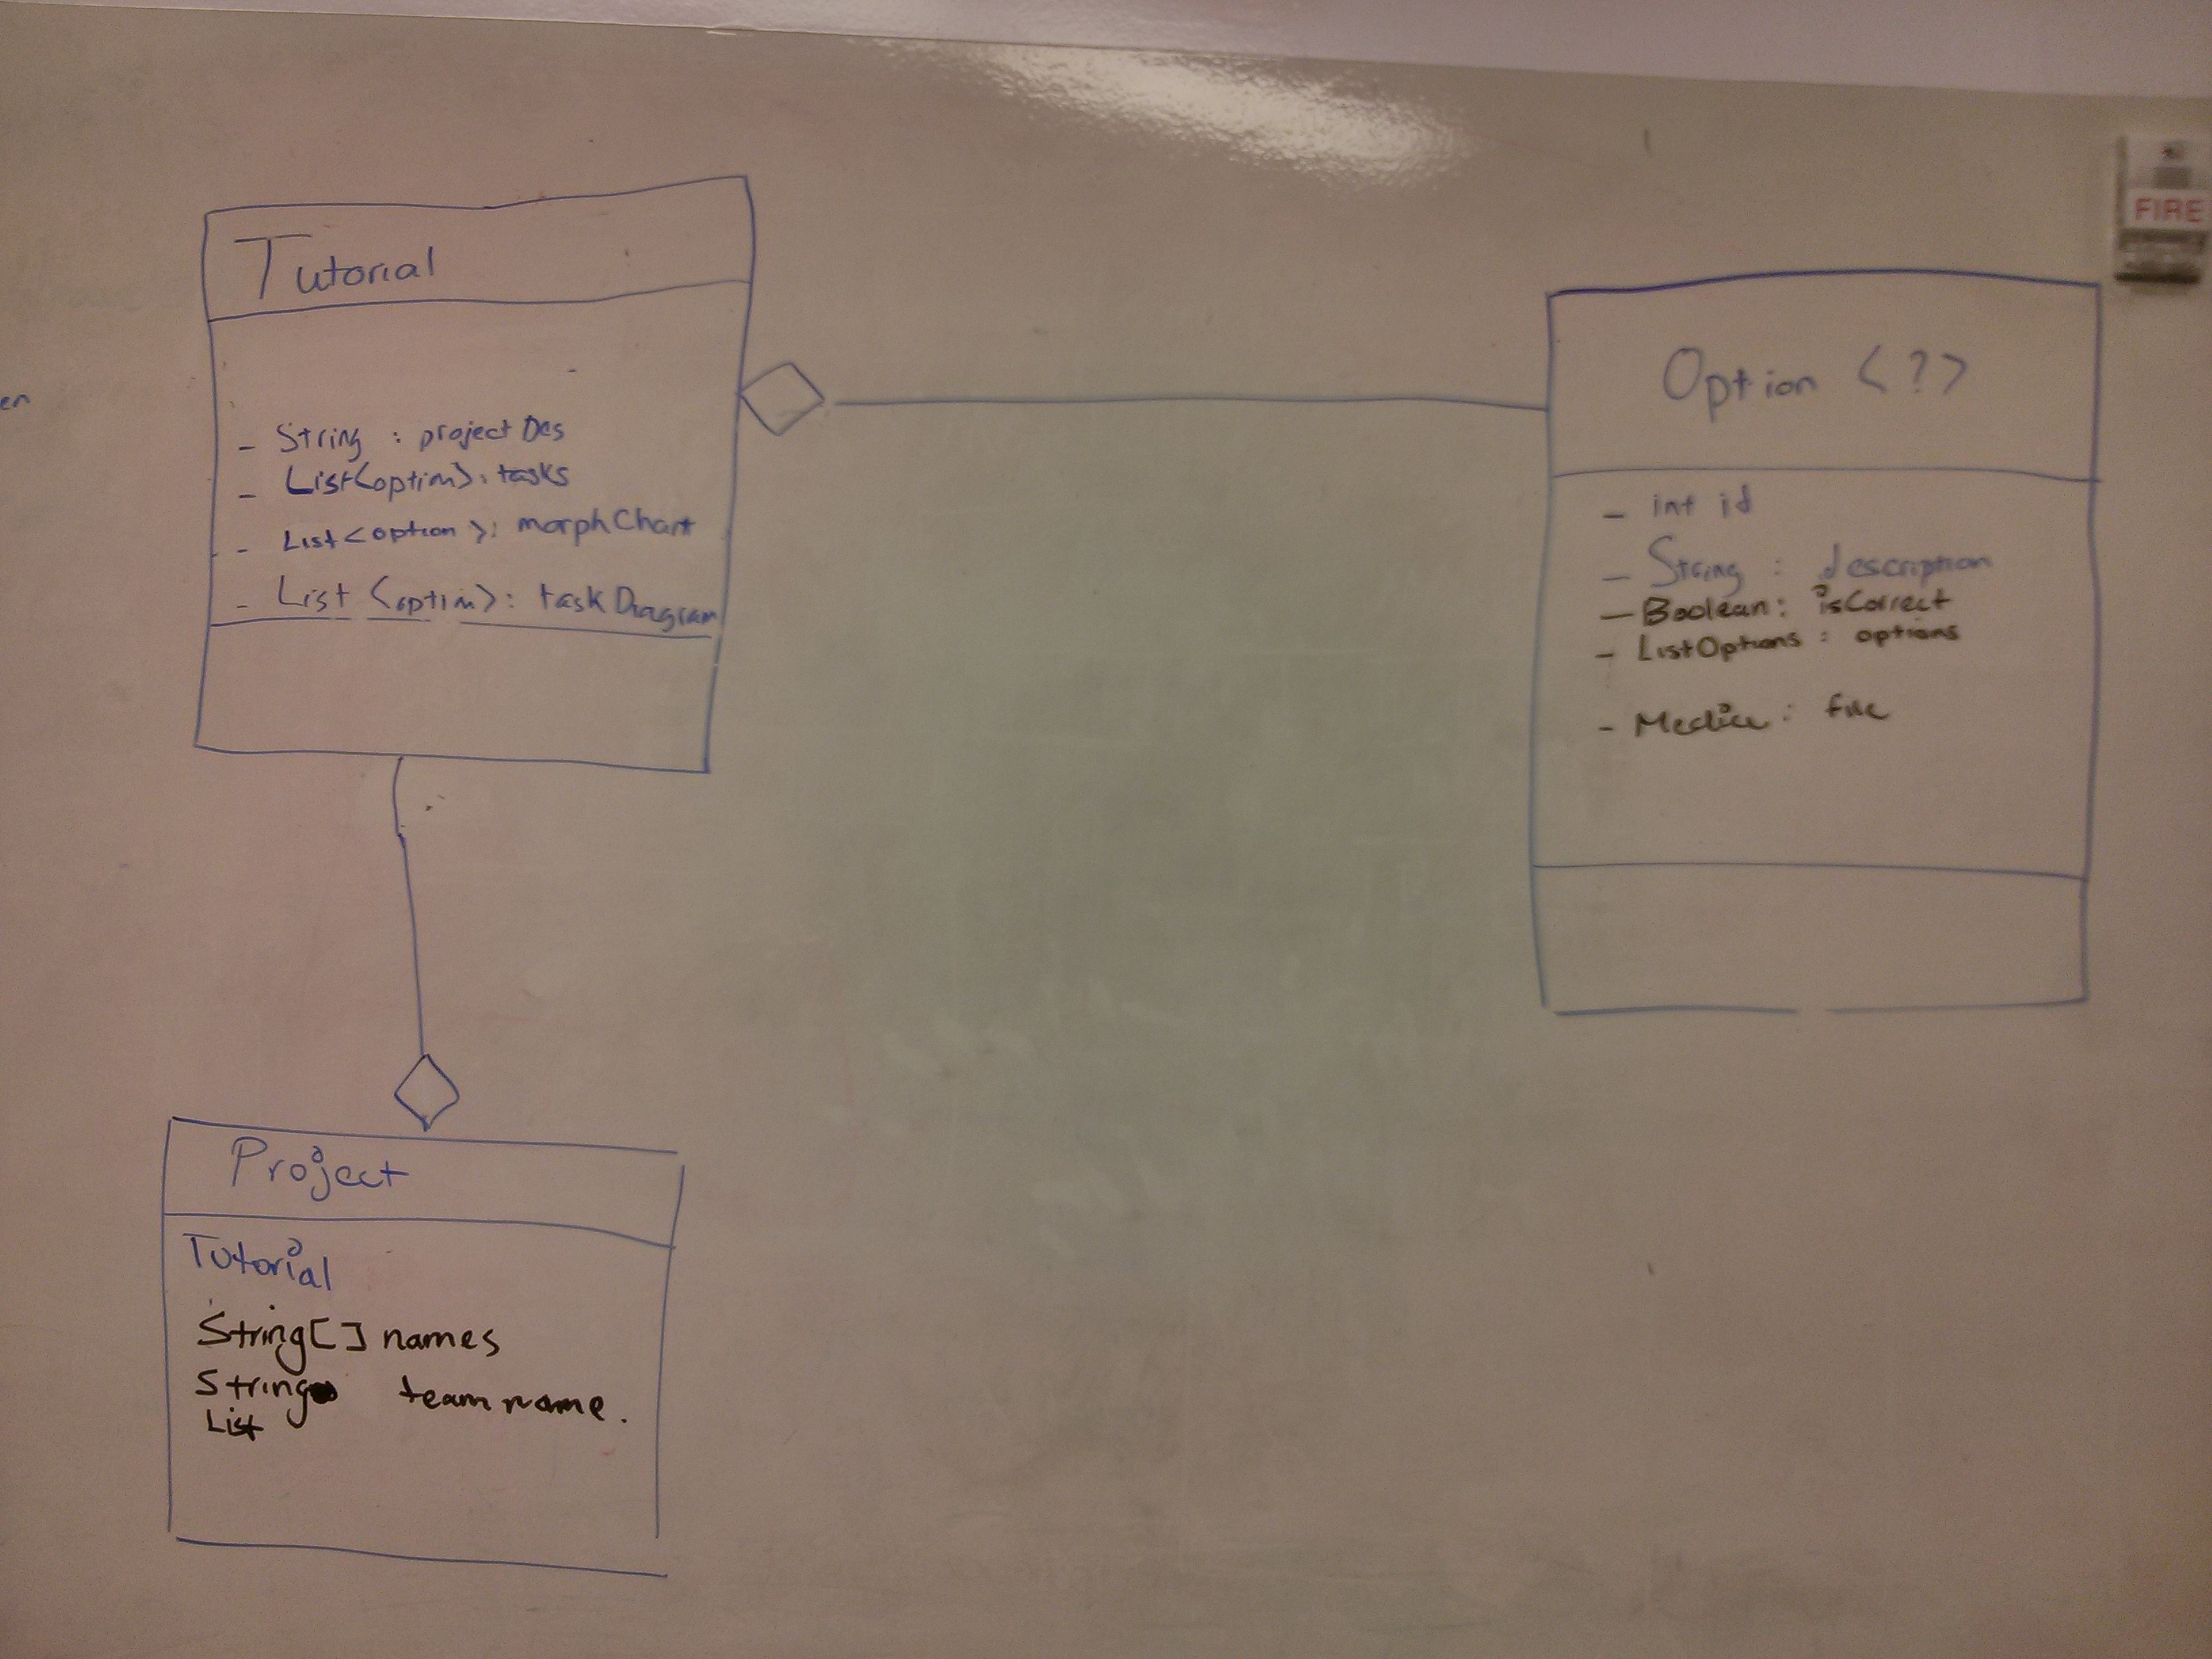 Tutorial
- String : projectDes
- List<option>: tasks
- List<option>: morphChart
- List <option>: taskDiagram
en
FIRE
Option <?>
- int id
- String : description
- Boolean: isCorrect
- ListOptions : options
- Media: file
Project
Tutorial
String[] names
String team name.
List